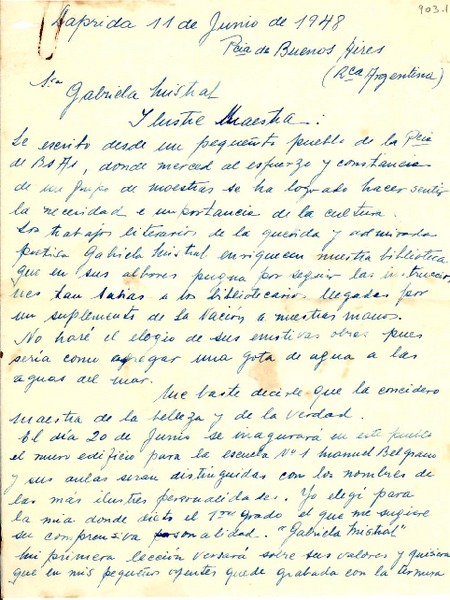 903.1
Laprida 11 de Junio de 1948
Pcia de Buenos Aires
(Rca Argentina)
Sra
Gabriela Mistral
Ilustre Maestra:
Le escribo desde un pequeño pueblo de la Pcia
de Bs As, donde merced al esfuerzo y constancia
de un grupo de maestras se ha logrado hacer sentir
la necesidad e importancia de la cultura.
Los trabajos literarios de la querida y admirada
poetisa Gabriela Mistral enriquecen nuestra biblioteca
que en sus albores pugna por seguir las instruccio
nes tan sabias a los bibliotecarios llegadas por
un suplemento de la Nación a nuestras manos.
No haré el elogio de sus emotivas obras pues
sería como agregar una gota de agua a las
aguas del mar.
Me baste decirle que la concidero
maestra de la belleza y de la verdad.
El día 20 de Junio se inagurará en este pueblo
el nuevo edificio para la escuela Nº 1 Manuel Belgrano
y sus aulas seran distinguidas con los nombres de
las más ilustres personalidades. Yo elegí para
la mía donde dicto el 1er grado el que me sugiere
su comprensiva personalidad. "Gabriela Mistral"
Mi primera lección versará sobre sus valores y quisiera
que en mis pequeños oyentes quede grabada con la ternura